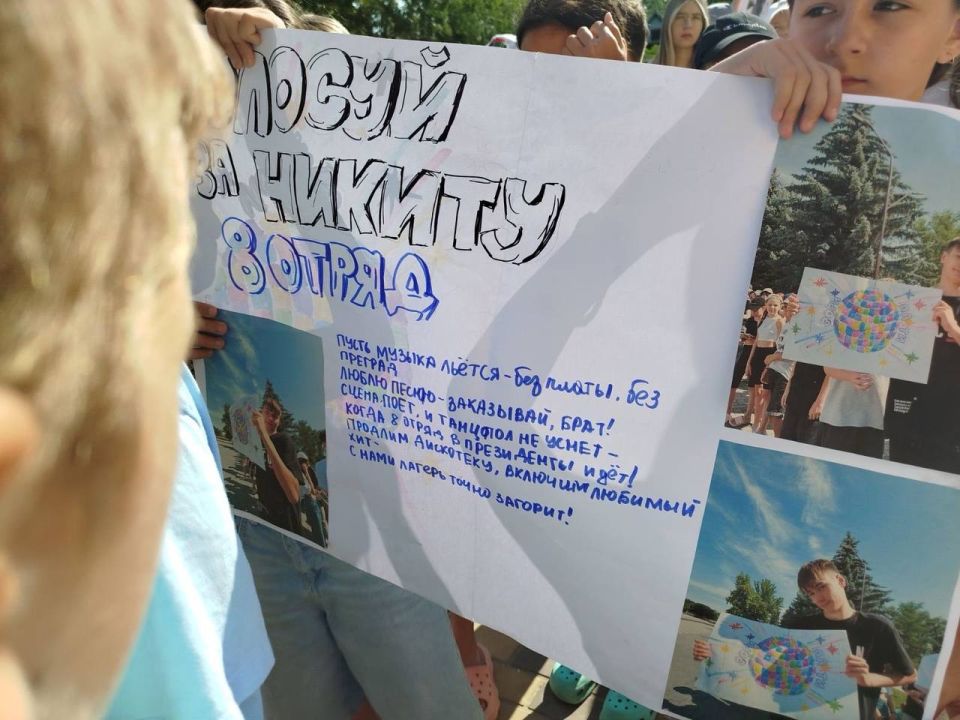 ЛОСУЙ
ЗА НИКИТУ
8 ОТРЯД
ПУСТЬ МУЗЫКА ЛЬЁТСЯ - без платы, без
ПРЕГРАД
ЛЮБУЮ ПЕСНЮ - ЗАКАЗЫВАЙ, БРАТ!
СЦЕНА ПОЕТ, И ТАНЦПОЛ НЕ УСНЕТ -
КОГДА 8 ОТРЯД В ПРЕЗИДЕНТЫ ИДЁТ!
ПРОДЛИМ ДИСКОТЕКУ, ВКЛЮЧИМ ЛЮБИМЫЙ
ХИТ -
С НАМИ ЛАГЕРЬ ТОЧНО ЗАГОРИТ!